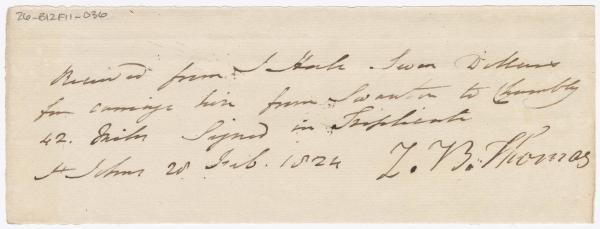 26-B12F11-036
Received from J Hale Seven Dollars
for carriage hire from Swanton to Chambly
42. Miles Signed in Triplicate
St Johns 28 Feb. 1824 Z. B. Thomas